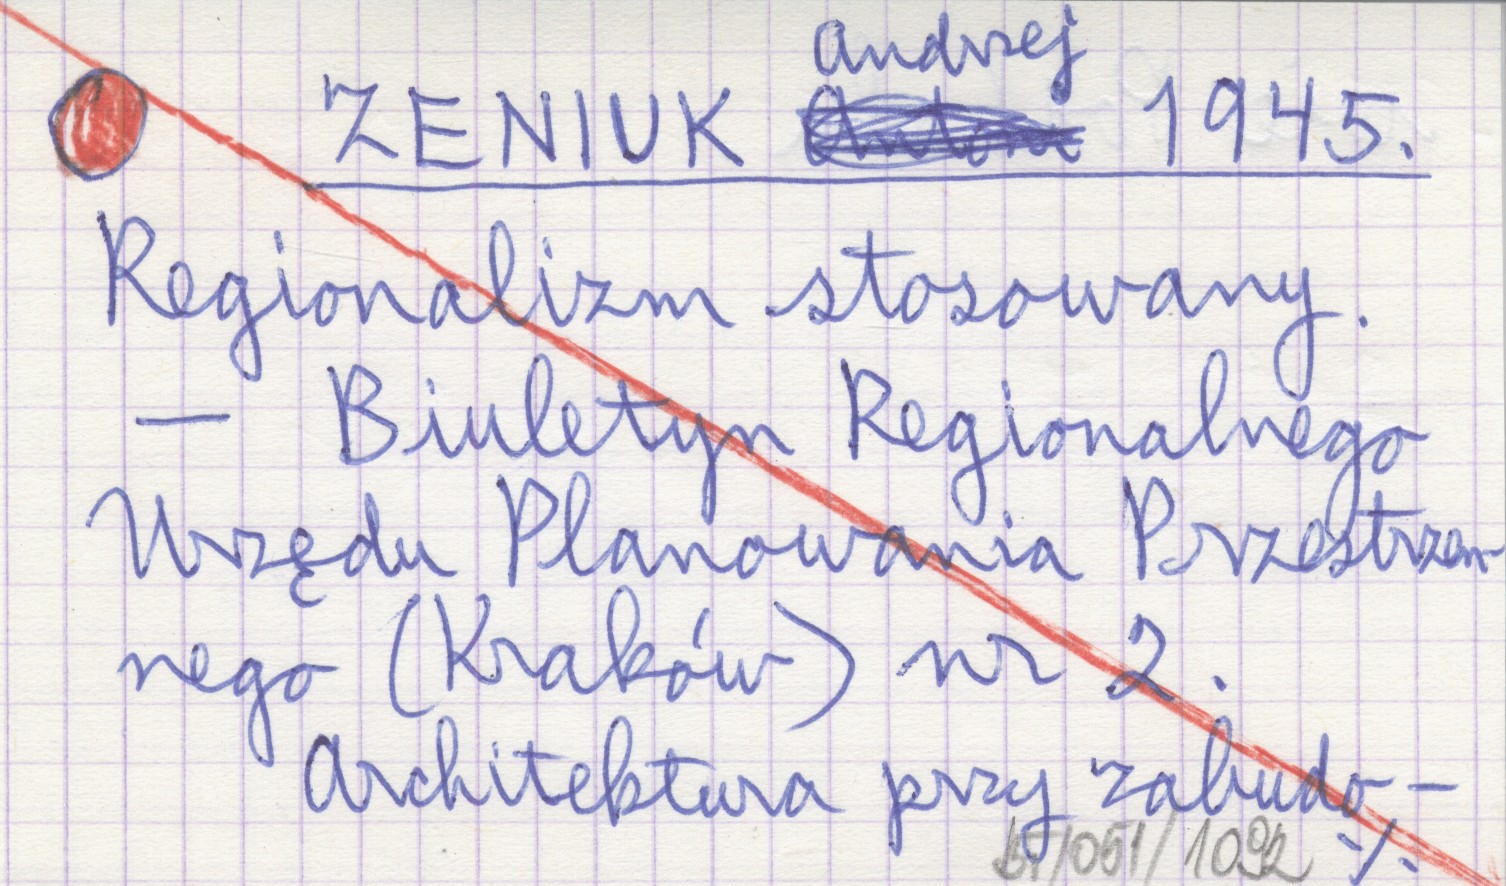 Andrzej
ZENIUK Antoni 1945.
Regionalizm stosowany.
— Biuletyn Regionalnego
Urzędu Planowania Przestrzen-
nego (Kraków) nr 2.
Architektura przy zabudo-
BT/051/1092 ·/·